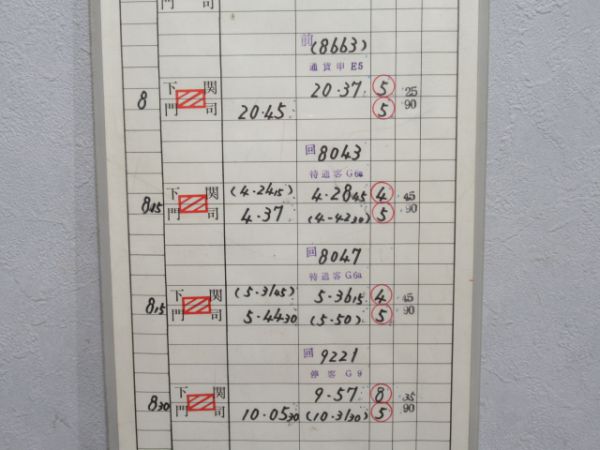 門 司
前 (8663)
通貨甲E5
8 下 関 20・37 5 25
門 司 20・45 5 90
回 8043
特通客G6a
845 下 関 (4・2415) 4・2845 4 45
門 司 4・37 (4・4230) 5 90
回 8047
特通客G6a
815 下 関 (5・3145) 5・3615 4 45
門 司 5・4430 (5・50) 5 90
回 9221
停客 G9
830 下 関 9・57 8 35
門 司 10・0530 (10・3130) 5 90